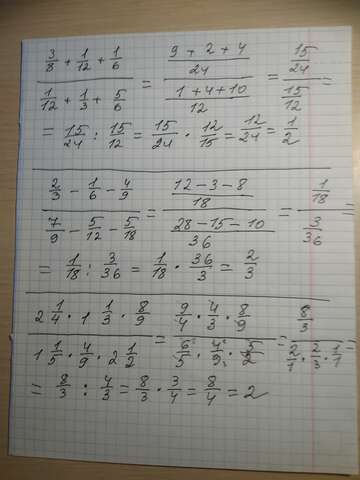 3/8 + 1/12 + 1/6 / 1/12 + 1/3 + 5/6 = 9 + 2 + 4/24 / 1 + 4 + 10/12 = 15/24 / 15/12 =
= 15/24 : 15/12 = 15/24 · 12/15 = 12/24 = 1/2
2/3 - 1/6 - 4/9 / 7/9 - 5/12 - 5/18 = 12 - 3 - 8/18 / 28 - 15 - 10/36 = 1/18 / 3/36 =
= 1/18 : 3/36 = 1/18 · 36/3 = 2/3
2 1/4 · 1 1/3 · 8/9 / 1 1/5 · 4/9 · 2 1/2 = 9/4 · 4/3 · 8/9 / 6/5 · 4/9 · 5/2 = 8/3 / 2/1 · 2/3 · 1/1 =
= 8/3 : 4/3 = 8/3 · 3/4 = 8/4 = 2